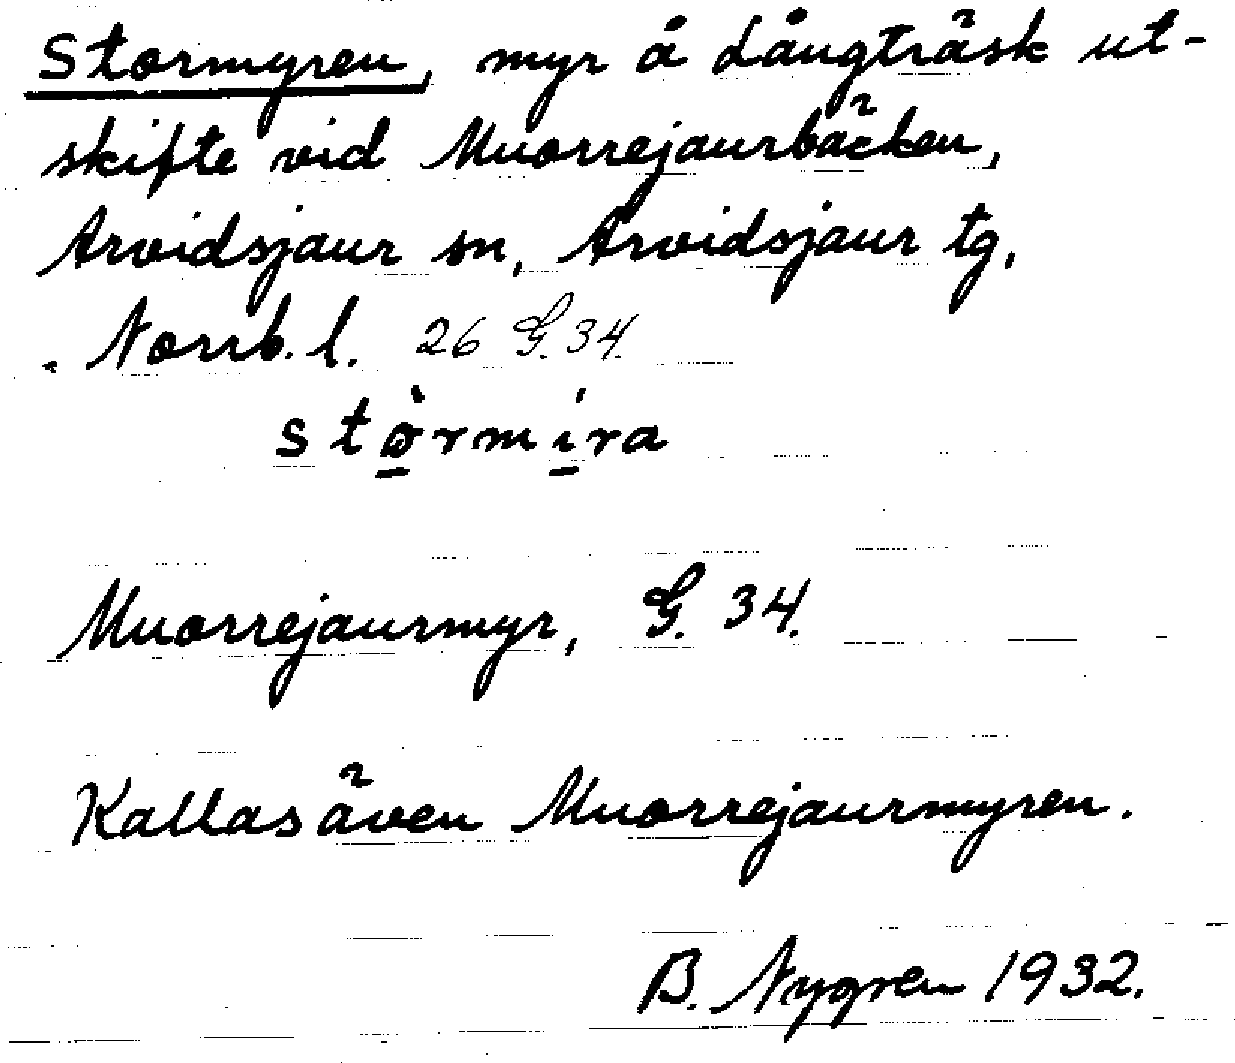 Stormyren, myr å Långträsk ut-
skifte vid Muorrejaurbäcken,
Arvidsjaur sn, Arvidsjaur tg,
Norrb. l. 26 G. 34.
stòrmíra
Muorrejaurmyr, G. 34.
Kallas även Muorrejaurmyren.
B. Nygren 1932.